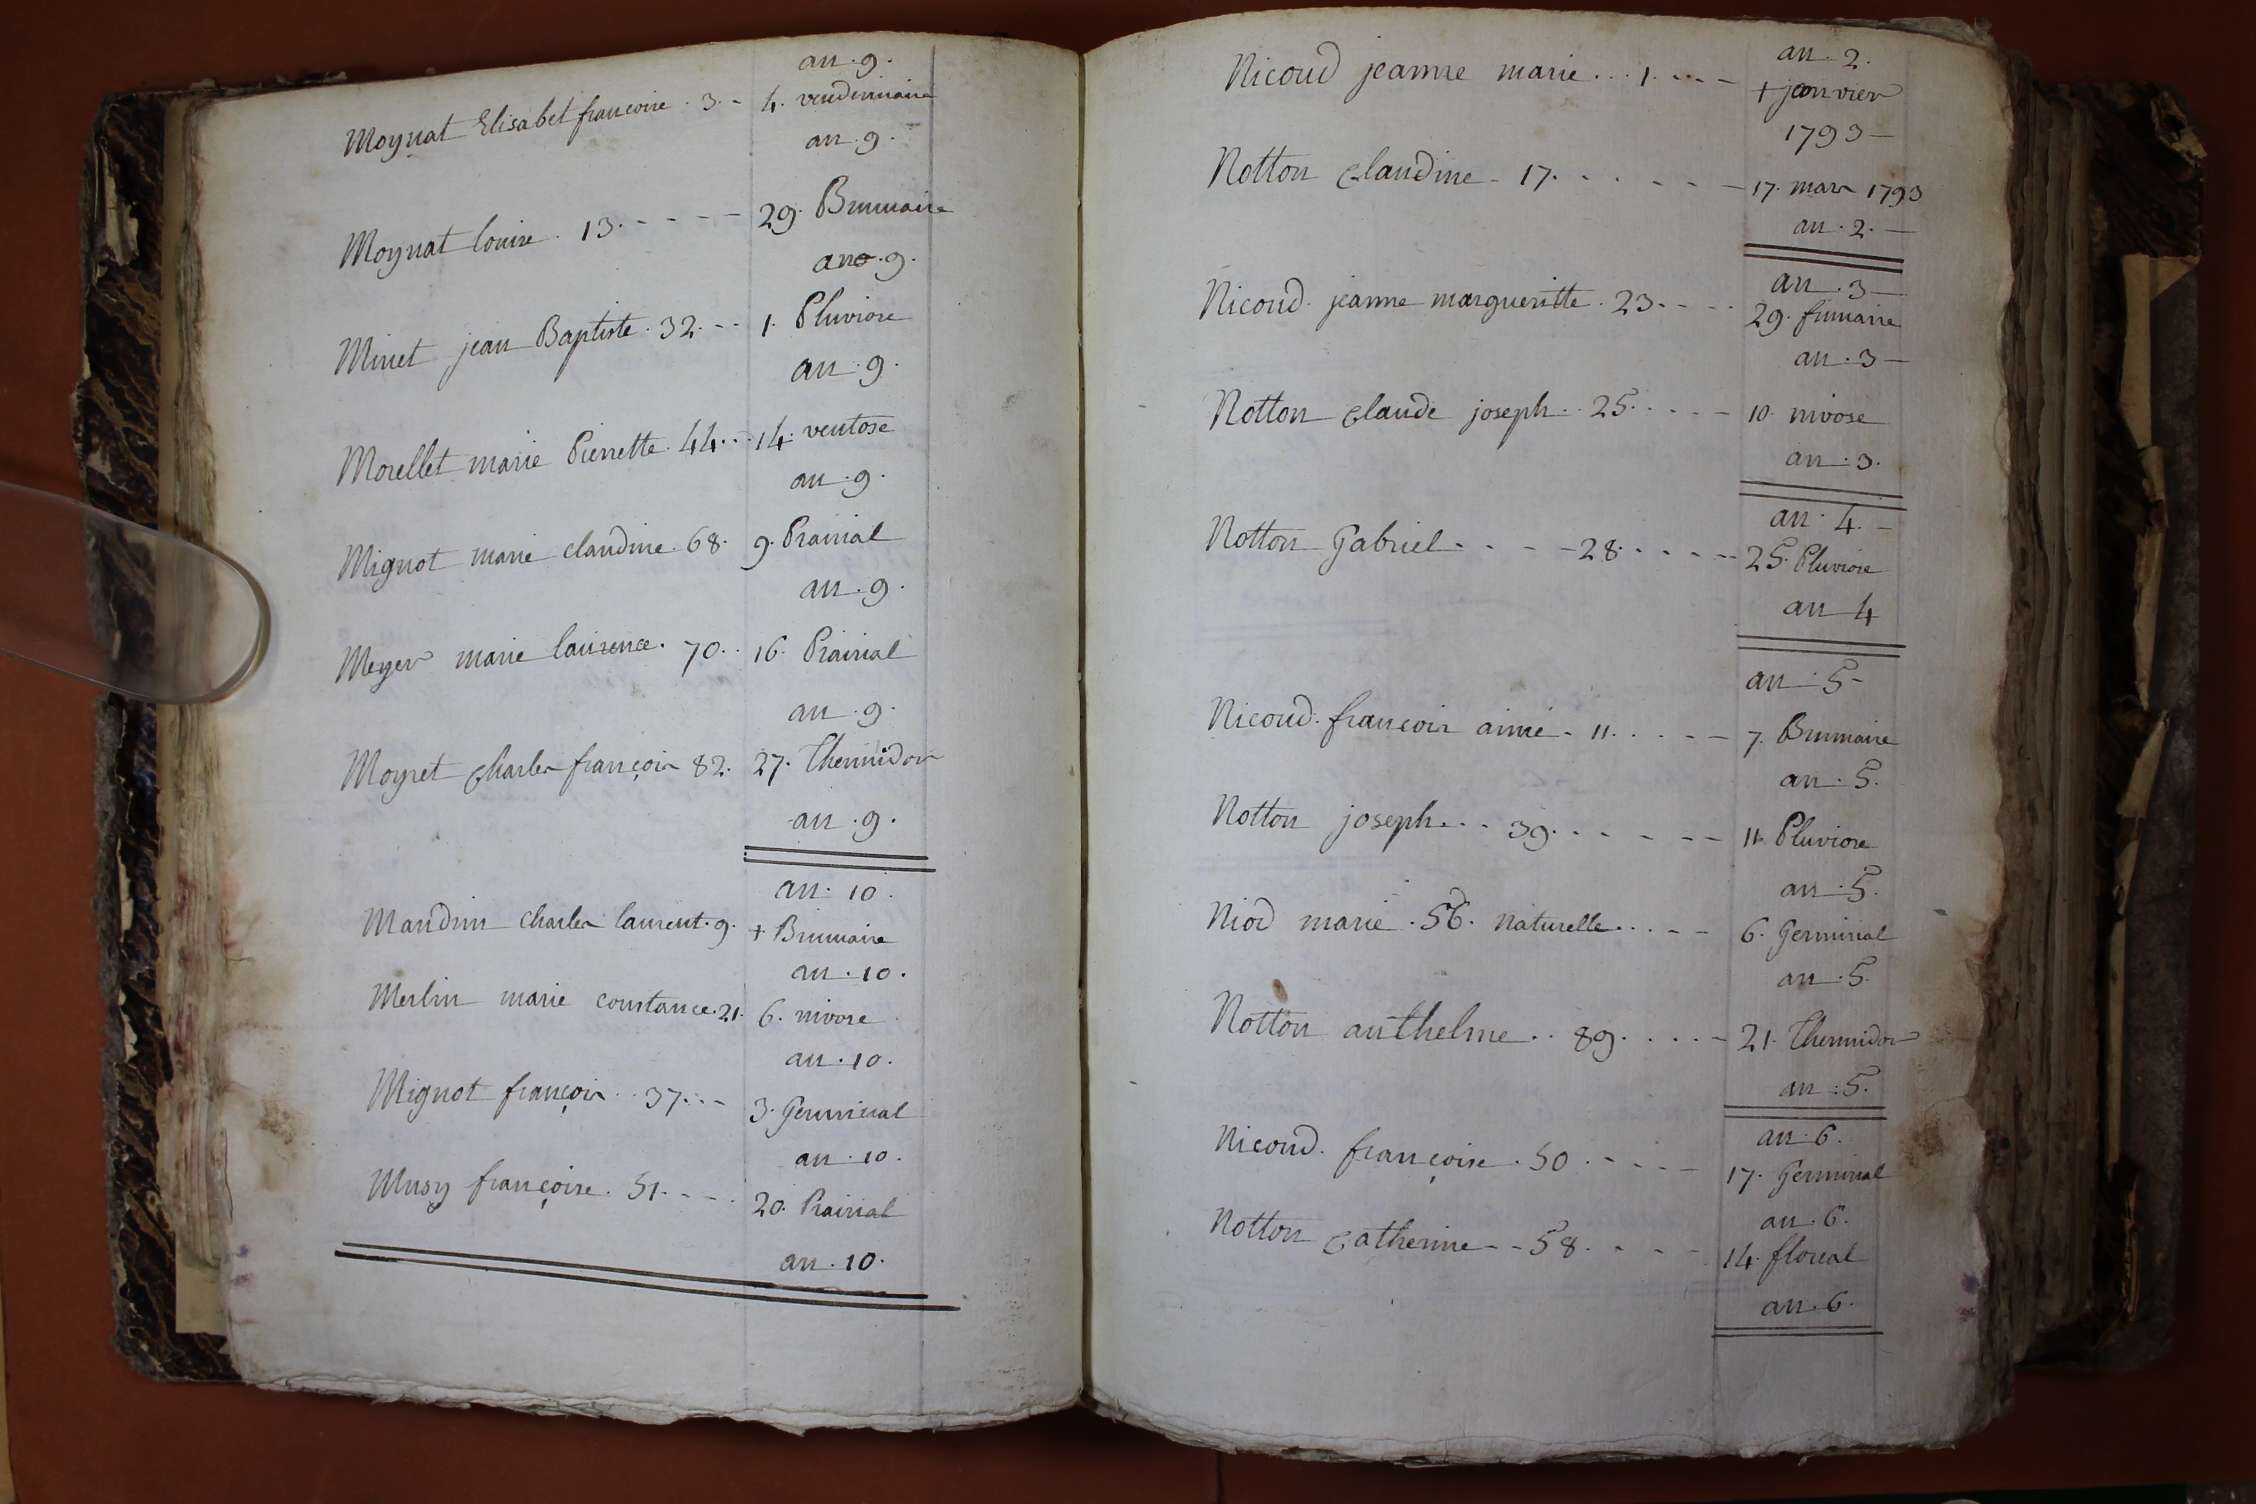 an. 9.
Moynat Elisabet françoise. 3. - 4. vendemiaire
an. 9.
Moynat louise. 13. - - - - - 29. Brumaire
an. 9.
Minet jean Baptiste. 32. - - 1. Pluviose
an. 9.
Morellet marie Pierrette. 44. . . 14. ventose
an. 9.
Mignot marie claudine. 68. 9. Prairial
an. 9.
Meyer marie laurence. 70. . 16. Prairial
an. 9.
Moyret charles françois 82. 27. Thermidor
an. 9.
an. 10.
Mandrin charles laurent. 9. + Brumaire
an. 10.
Merlin marie constance. 21. 6. nivose
an. 10.
Mignot françois. . 37. . . - 3. Germinal
an. 10.
Musy françoise. 51. - - - . 20. Prairial
an. 10.
an. 2.
Nicoud jeanne marie. . . 1. - - - - + janvier
1793 -
Notton claudine - 17. . . . . - - - 17. mars 1793
an. 2. -
an. 3 -
Nicoud. jeanne margueritte. 23. - - - . 29. frimaire
an. 3 -
Notton claude joseph. . 25. . . . - - 10. nivose
an. 3.
an. 4. -
Notton Gabriel. - - - - 28. . . . - - - 25. Pluviose
an 4
an. 5 -
Nicoud. françois aimé - 11. . . . - - 7. Brumaire
an. 5.
Notton joseph. . . 39. . - - - - - 11. Pluviose
an. 5.
Niod marie. 56. naturelle. . . . - - 6. Germinal
an. 5.
Notton anthelme. . 89. . . . . - 21. Thermidor
an. 5.
an. 6.
Nicoud. françoise. 50. - - - - - 17. Germinal
an. 6.
Notton catherine - - 58. . . - - 14. floreal
an. 6.